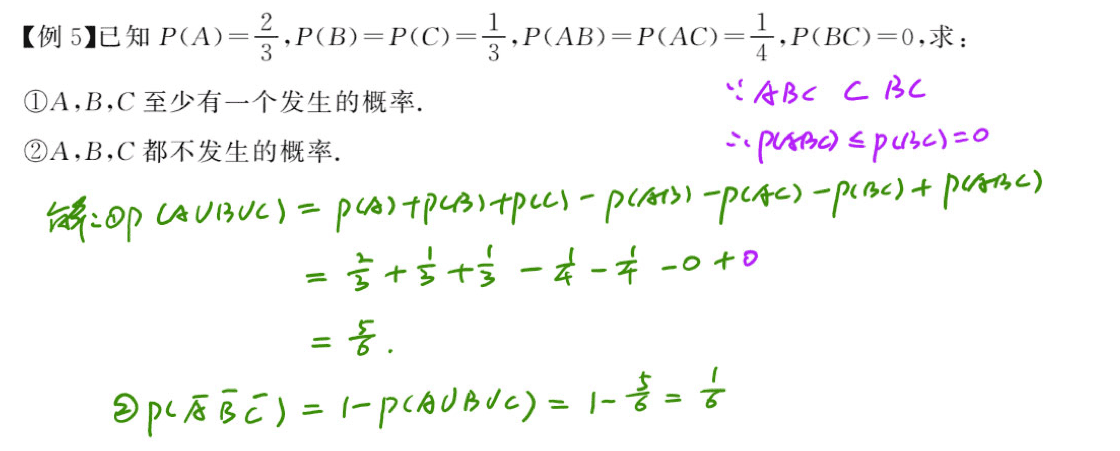 【例 5】已知 P(A)=2/3,P(B)=P(C)=1/3,P(AB)=P(AC)=1/4,P(BC)=0,求:
①A,B,C 至少有一个发生的概率.
∵ ABC ⊂ BC
②A,B,C 都不发生的概率.
∴ P(ABC) ≤ P(BC)=0
解:①P(A∪B∪C) = P(A)+P(B)+P(C) - P(AB) - P(AC) - P(BC) + P(ABC)
= 2/3 + 1/3 + 1/3 - 1/4 - 1/4 - 0 + 0
= 5/6 .
②P(A̅ B̅ C̅) = 1-P(A∪B∪C) = 1- 5/6 = 1/6